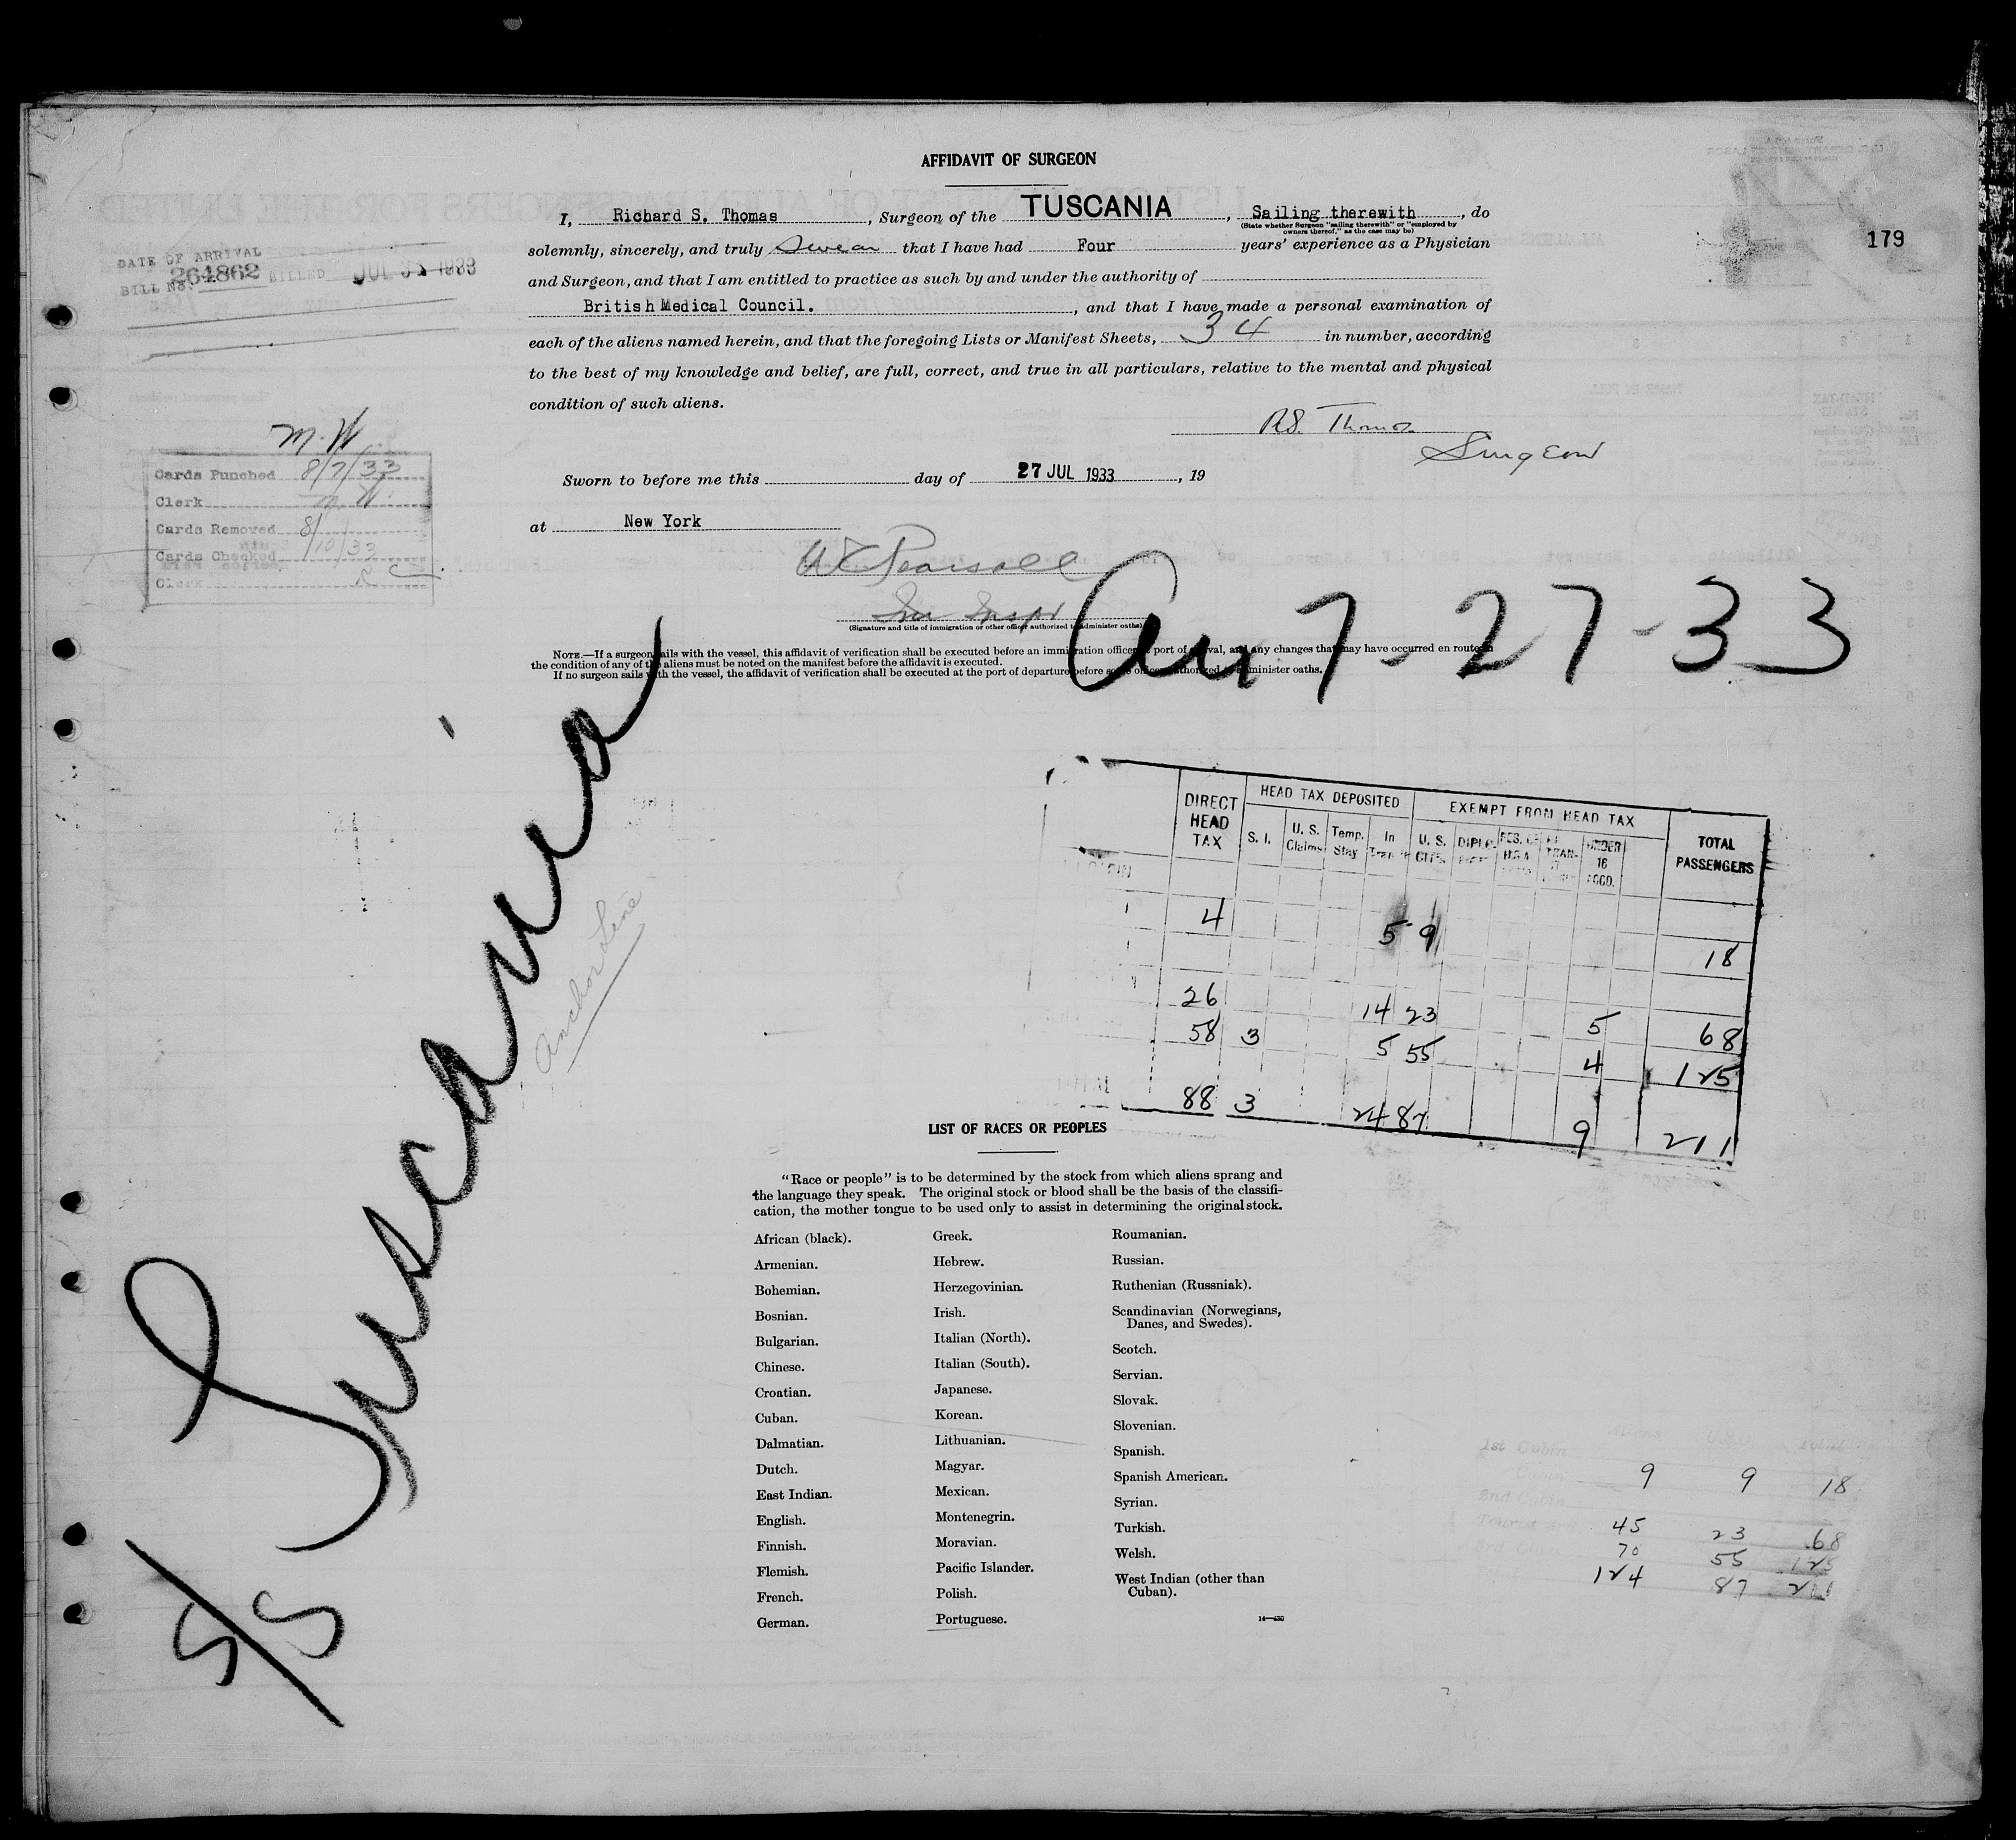 AFFIDAVIT OF SURGEON
I, Richard S. Thomas, Surgeon of the TUSCANIA, Sailing therewith, do
(State whether Surgeon "sailing therewith" or "employed by
owners thereof," as the case may be)
179
solemnly, sincerely, and truly swear that I have had Four years' experience as a Physician
and Surgeon, and that I am entitled to practice as such by and under the authority of
British Medical Council., and that I have made a personal examination of
each of the aliens named herein, and that the foregoing Lists or Manifest Sheets, 34 in number, according
to the best of my knowledge and belief, are full, correct, and true in all particulars, relative to the mental and physical
condition of such aliens.
R.S. Thomas
Surgeon
Sworn to before me this day of 27 JUL 1933, 19
at New York
W Pearsall
Imm Inspr
(Signature and title of immigration or other officer authorized to administer oaths)
NOTE.—If a surgeon sails with the vessel, this affidavit of verification shall be executed before an immigration officer at port of arrival, and any changes that may have occurred en route in
the condition of any of the aliens must be noted on the manifest before the affidavit is executed.
If no surgeon sails with the vessel, the affidavit of verification shall be executed at the port of departure before some officer authorized to administer oaths.
DATE OF ARRIVAL
BILL No. 264862 BILLED JUL 1933
M.W.
Cards Punched 8/7/33
Clerk M.W.
Cards Removed 8/
Cards Checked /10/33
Clerk
Arr 7-27-33
S/S Tuscania
Anchor Line
DIRECT HEAD TAX
HEAD TAX DEPOSITED
EXEMPT FROM HEAD TAX
TOTAL PASSENGERS
S. I.
U. S. Claims
Temp. Stay
In Transit
U. S. CIT'S.
UNDER 16
4 5 9 18
26 14 23 5 68
58 3 5 55 4 125
88 3 24 87 9 211
LIST OF RACES OR PEOPLES
"Race or people" is to be determined by the stock from which aliens sprang and
the language they speak. The original stock or blood shall be the basis of the classifi-
cation, the mother tongue to be used only to assist in determining the original stock.
African (black).
Armenian.
Bohemian.
Bosnian.
Bulgarian.
Chinese.
Croatian.
Cuban.
Dalmatian.
Dutch.
East Indian.
English.
Finnish.
Flemish.
French.
German.
Greek.
Hebrew.
Herzegovinian.
Irish.
Italian (North).
Italian (South).
Japanese.
Korean.
Lithuanian.
Magyar.
Mexican.
Montenegrin.
Moravian.
Pacific Islander.
Polish.
Portuguese.
Roumanian.
Russian.
Ruthenian (Russniak).
Scandinavian (Norwegians,
Danes, and Swedes).
Scotch.
Servian.
Slovak.
Slovenian.
Spanish.
Spanish American.
Syrian.
Turkish.
Welsh.
West Indian (other than
Cuban).
14—430
1st Cabin 9 9 18
2nd Cabin
Tourist 45 23 68
70 55 125
124 87 211